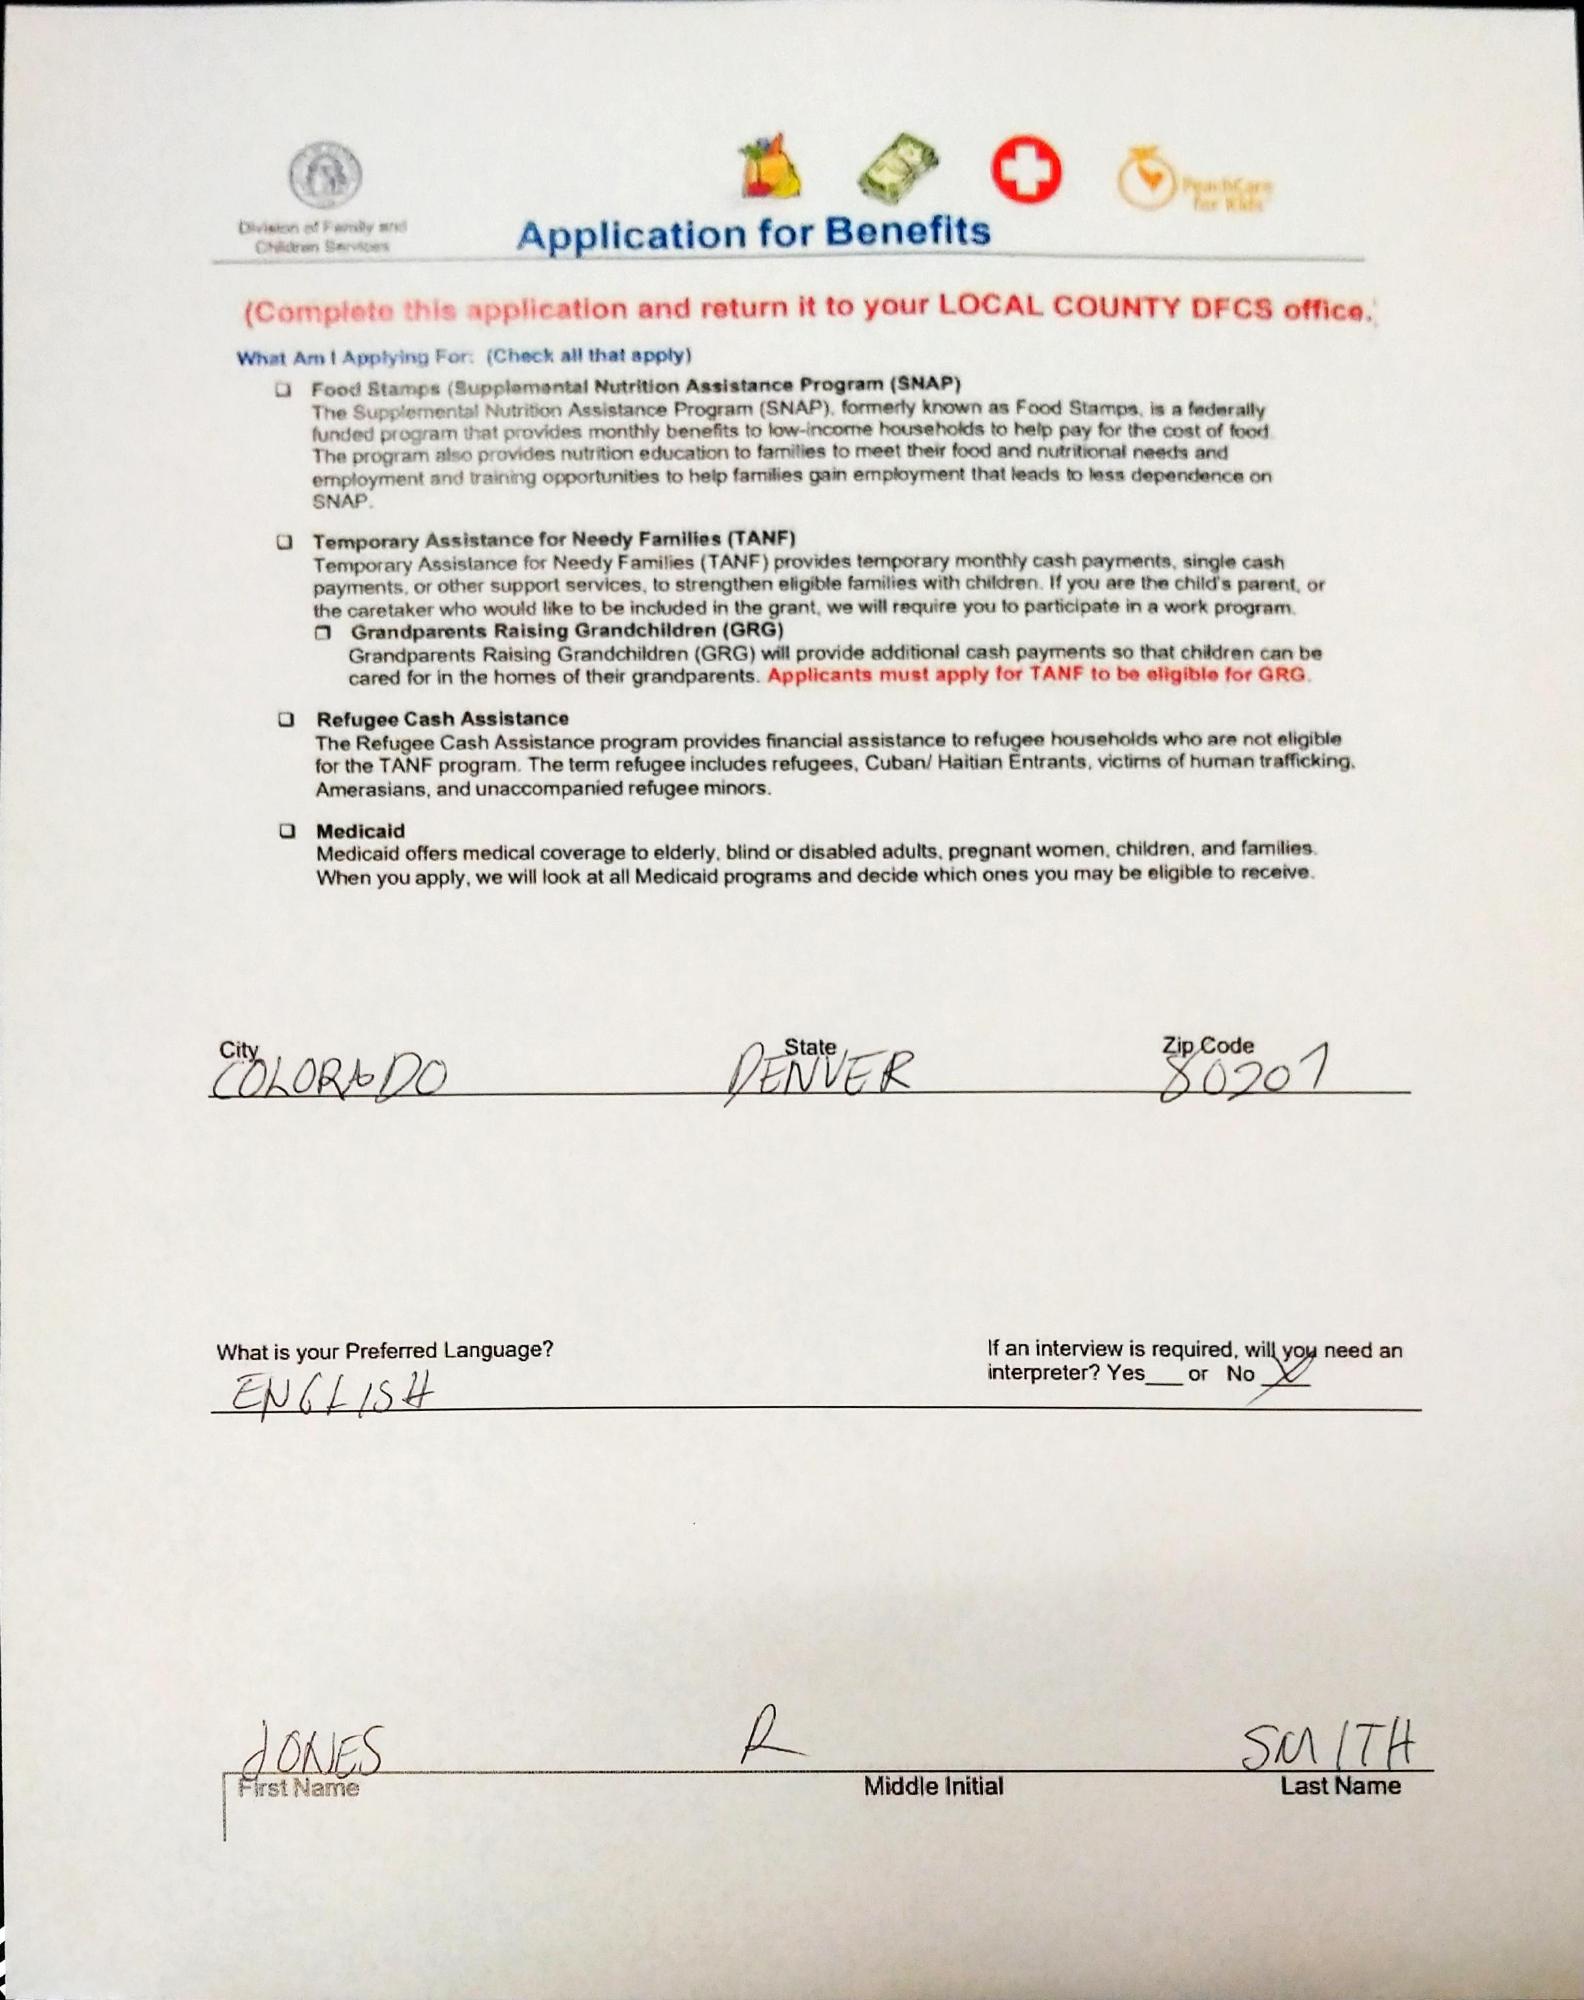 Division of Family and
Children Services
PeachCare
for Kids
Application for Benefits
(Complete this application and return it to your LOCAL COUNTY DFCS office.)
What Am I Applying For: (Check all that apply)
❑ Food Stamps (Supplemental Nutrition Assistance Program (SNAP)
The Supplemental Nutrition Assistance Program (SNAP), formerly known as Food Stamps, is a federally
funded program that provides monthly benefits to low-income households to help pay for the cost of food.
The program also provides nutrition education to families to meet their food and nutritional needs and
employment and training opportunities to help families gain employment that leads to less dependence on
SNAP.
❑ Temporary Assistance for Needy Families (TANF)
Temporary Assistance for Needy Families (TANF) provides temporary monthly cash payments, single cash
payments, or other support services, to strengthen eligible families with children. If you are the child's parent, or
the caretaker who would like to be included in the grant, we will require you to participate in a work program.
❑ Grandparents Raising Grandchildren (GRG)
Grandparents Raising Grandchildren (GRG) will provide additional cash payments so that children can be
cared for in the homes of their grandparents. Applicants must apply for TANF to be eligible for GRG.
❑ Refugee Cash Assistance
The Refugee Cash Assistance program provides financial assistance to refugee households who are not eligible
for the TANF program. The term refugee includes refugees, Cuban/ Haitian Entrants, victims of human trafficking,
Amerasians, and unaccompanied refugee minors.
❑ Medicaid
Medicaid offers medical coverage to elderly, blind or disabled adults, pregnant women, children, and families.
When you apply, we will look at all Medicaid programs and decide which ones you may be eligible to receive.
City State Zip Code
COLORADO DENVER 80207
What is your Preferred Language?
ENGLISH
If an interview is required, will you need an
interpreter? Yes___ or No X
JONES R SMITH
First Name Middle Initial Last Name